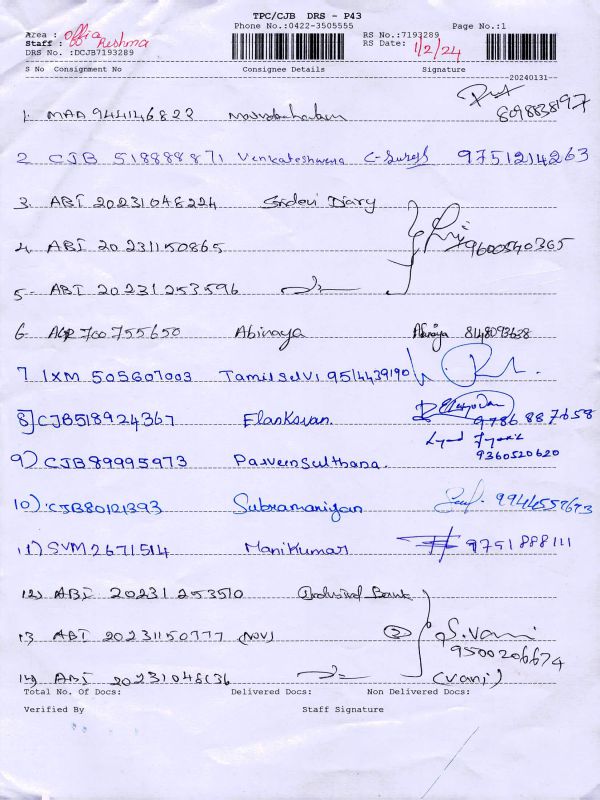 TPC/CJB DRS - P43
Phone No.:0422-3505555 Page No.:1
Area : Office RS No.:7193289
Staff : Reshma RS Date: 1/2/24
DRS No. :DCJB7193289
S No Consignment No Consignee Details Signature
20240131
1. MAA 944146822 8098838197
2. CJB 518888871 Venkateshwara C-Suresh 9751214263
3. ABI 20231048224 Sridevi Diary
4. ABI 20231150865 9600540365
5. ABI 20231253596
6. AGR 700755650 Abinaya Abinaya 8148093638
7. IXM 505607003 Tamilselvi 9514439190
8] CJB518924367 Elankovan. 9786887658
9360520620
9) CJB89995973 Parveensulthana.
10) CJB80121393 Subramaniyan 9944557673
11) SVM2671514 Manikumar 9751888111
12) ABI 20231253510 Indusind Bank
13. ABI 20231150777 (NOV) 2 S.Vani
9500206674
14) ABI 20231048136 (Vani)
Total No. Of Docs: Delivered Docs: Non Delivered Docs:
Verified By Staff Signature